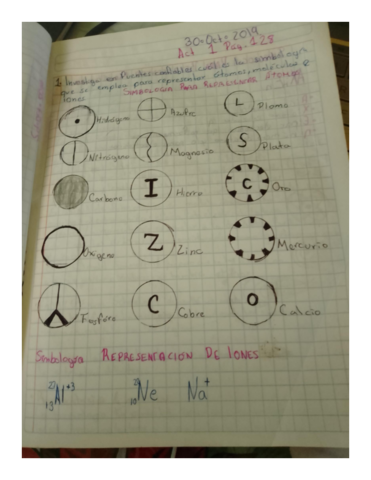 30-Oct-2019
Act 1 Pag. 128
1. Investiga con fuentes confiables cual es la simbología
que se emplea para representar átomos, moléculas e
Iones
SIMBOLOGIA PARA REPRESENTAR ATOMOS
Hidrógeno Azufre L Plomo
Nitrógeno Magnesio S Plata
Carbono I Hierro C Oro
Oxígeno Z Zinc Mercurio
Fosforo C Cobre O Calcio
Simbología REPRESENTACION DE IONES
27 13 Al +3 10 Ne Na +